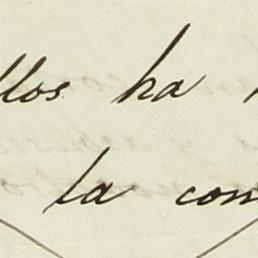 llos ha
la con